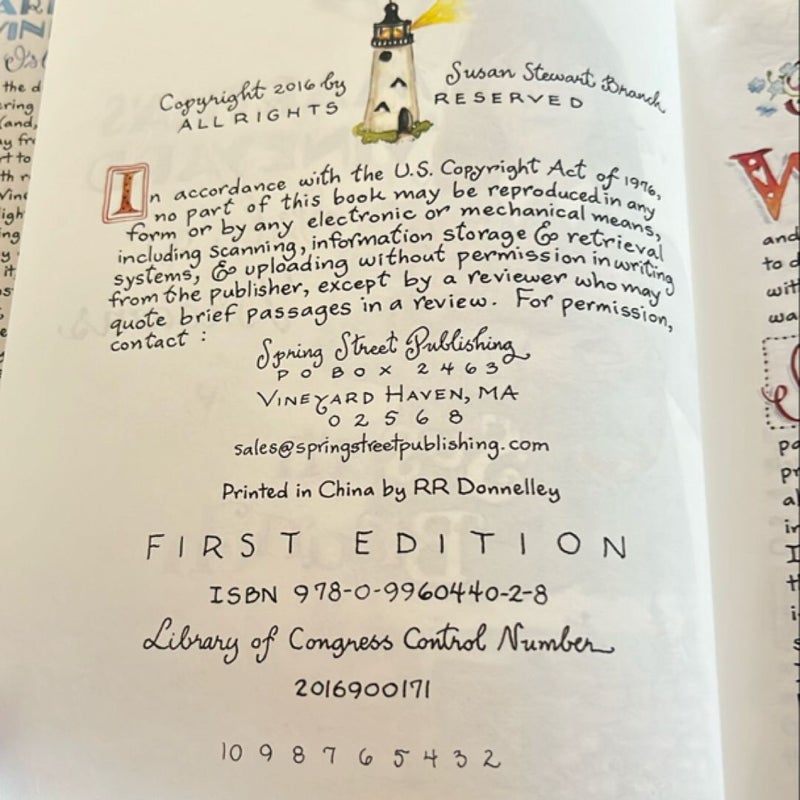 Copyright 2016 by Susan Stewart Branch
ALL RIGHTS RESERVED
In accordance with the U.S. Copyright Act of 1976,
no part of this book may be reproduced in any
form or by any electronic or mechanical means,
including scanning, information storage & retrieval
systems, & uploading without permission in writing
from the publisher, except by a reviewer who may
quote brief passages in a review. For permission,
contact :
Spring Street Publishing
PO BOX 2463
VINEYARD HAVEN, MA
02568
sales@springstreetpublishing.com
Printed in China by RR Donnelley
FIRST EDITION
ISBN 978-0-9960440-2-8
Library of Congress Control Number
2016900171
10 9 8 7 6 5 4 3 2
the d
and
to d
with